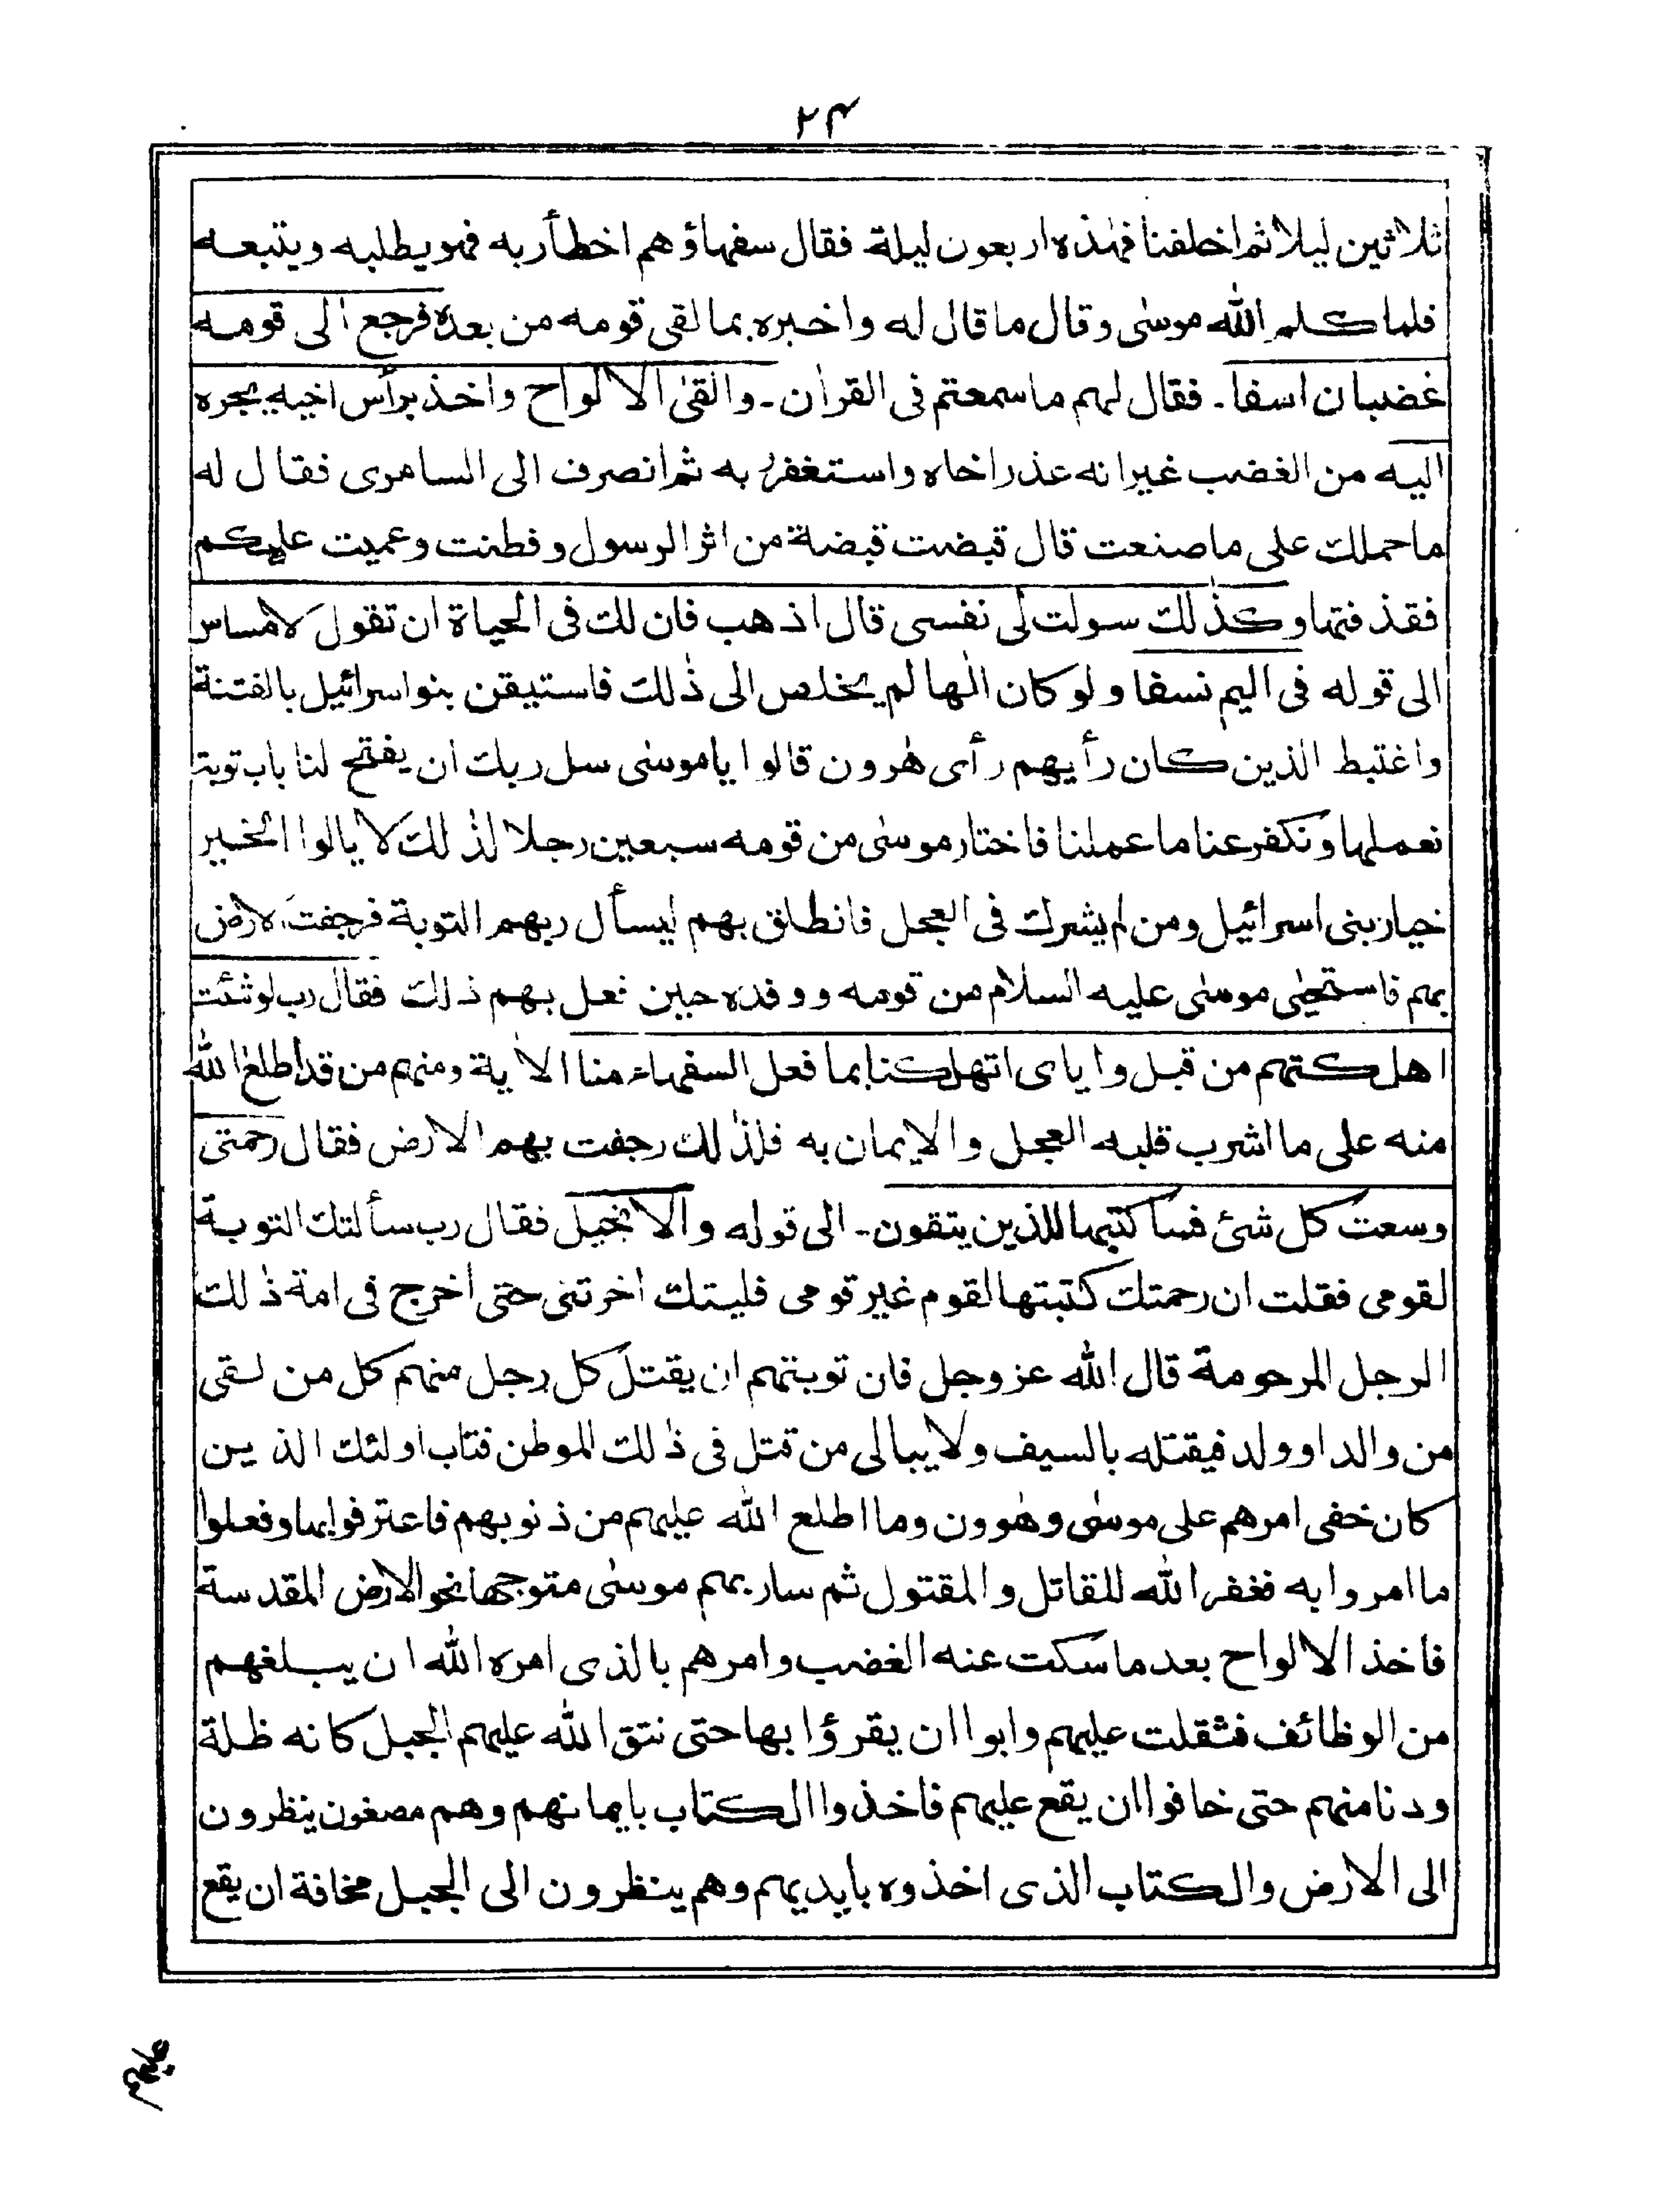 ۲۴
ثلاثين ليلا ثم اخلفنا فهٰذه اربعون ليلة فقال سفهاؤهم اخطأ ربه فهو يطلبه ويتبعه
فلما كلم الله موسىٰ وقال ما قال له واخبره بما لقى قومه من بعده فرجع الى قومه
غضبان اسفا ـ فقال لهم ما سمعتم فى القراٰن ـ والقىٰ الالواح واخذ برأس اخيه يجره
اليه من الغضب غير انه عذر اخاه واستغفر ربه ثم انصرف الى السامرى فقال له
ما حملك على ما صنعت قال قبضت قبضة من اثر الرسول وفطنت وعميت عليكم
فقذفتها وكذٰلك سولت لى نفسى قال اذهب فان لك فى الحياة ان تقول لا مساس
الى قوله فى اليم نسفا ولو كان الٰها لم يخلص الى ذٰلك فاستيقن بنو اسرائيل بالفتنة
واغتبط الذين كان رأيهم رأى هٰرون قالوا يا موسىٰ سل ربك ان يفتح لنا باب توبة
نعملها ونكفر عنا ما عملنا فاختار موسىٰ من قومه سبعين رجلا لذٰلك لا يالوا الخير
خيار بنى اسرائيل ومن لم يشرك فى العجل فانطلق بهم ليسأل ربهم التوبة فرجفت الارض
بهم فاستحيٰى موسىٰ عليه السلام من قومه ووفده حين فعل بهم ذلك فقال رب لو شئت
اهلكتهم من قبل واياى اتهلكنا بما فعل السفهاء منا الاٰية ومنهم من قد اطلع الله
منه على ما اشرب قلبه العجل والايمان به فلذٰلك رجفت بهم الارض فقال رحمتى
وسعت كل شئ فسأكتبها للذين يتقون ـ الى قوله والانجيل فقال رب سألتك التوبة
لقومى فقلت ان رحمتك كتبتها لقوم غير قومى فليتك اخرتنى حتى اخرج فى امة ذٰلك
الرجل المرحومة قال الله عز وجل فان توبتهم ان يقتل كل رجل منهم كل من لقى
من والد او ولد فيقتله بالسيف ولا يبالى من قتل فى ذٰلك الموطن فتاب اولئك الذين
كان خفى امرهم على موسىٰ وهٰرون وما اطلع الله عليهم من ذنوبهم فاعترفوا بها وفعلوا
ما امروا به فغفر الله للقاتل والمقتول ثم سار بهم موسىٰ متوجها نحو الارض المقدسة
فاخذ الالواح بعد ما سكت عنه الغضب وامرهم بالذى امره الله ان يبلغهم
من الوظائف فثقلت عليهم وابوا ان يقرؤا بها حتى نتق الله عليهم الجبل كانه ظلة
ودنا منهم حتى خافوا ان يقع عليهم فاخذوا الكتاب بايمانهم وهم مصغون ينظرون
الى الارض والكتاب الذى اخذوه بايديهم وهم ينظرون الى الجبل مخافة ان يقع
عليهم